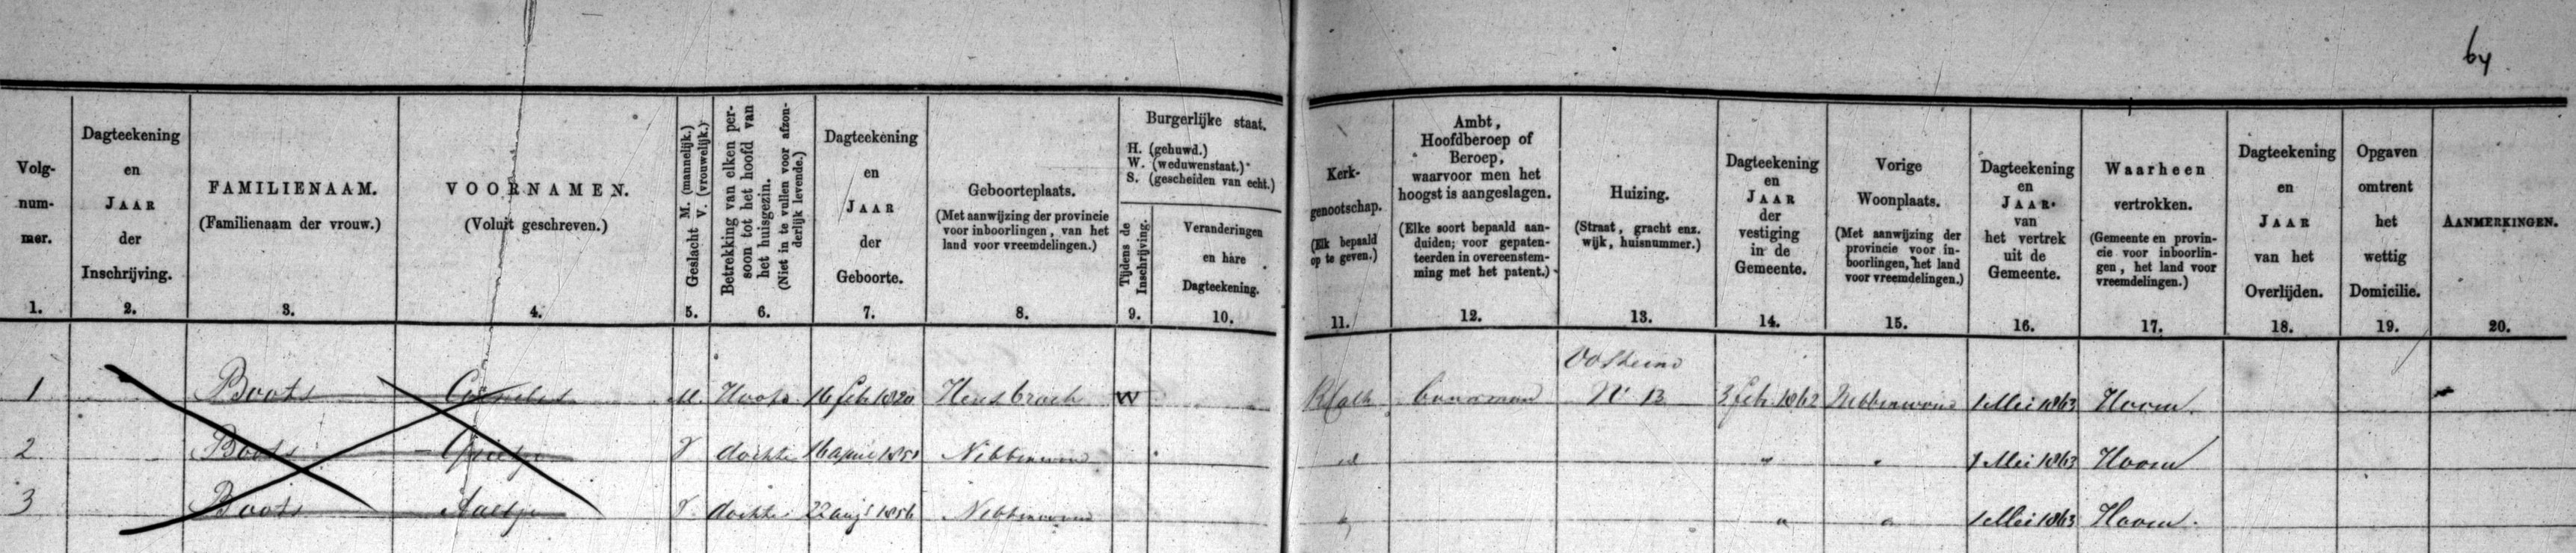 64
Volg-
num-
mer.
1.
Dagteekening
en
JAAR
der
Inschrijving.
2.
FAMILIENAAM.
(Familienaam der vrouw.)
3.
VOORNAMEN.
(Voluit geschreven.)
4.
Geslacht M. (mannelijk.)
V. (vrouwelijk.)
5.
Betrekking van elken per-
soon tot het hoofd van
het huisgezin.
(Niet in te vullen voor afzon-
derlijk levende.)
6.
Dagteekening
en
JAAR
der
Geboorte.
7.
Geboorteplaats.
(Met aanwijzing der provincie
voor inboorlingen, van het
land voor vreemdelingen.)
8.
Burgerlijke staat.
H. (gehuwd.)
W. (weduwenstaat.)
S. (gescheiden van echt.)
Tijdens de
Inschrijving.
9.
Veranderingen
en hare
Dagteekening.
10.
Kerk-
genootschap.
(Elk bepaald
op te geven.)
11.
Ambt,
Hoofdberoep of
Beroep,
waarvoor men het
hoogst is aangeslagen.
(Elke soort bepaald aan-
duiden; voor gepaten-
teerden in overeenstem-
ming met het patent.)
12.
Huizing.
(Straat, gracht enz.
wijk, huisnummer.)
13.
Dagteekening
en
JAAR
der
vestiging
in de
Gemeente.
14.
Vorige
Woonplaats.
(Met aanwijzing der
provincie voor in-
boorlingen, het land
voor vreemdelingen.)
15.
Dagteekening
en
JAAR
van
het vertrek
uit de
Gemeente.
16.
Waarheen
vertrokken.
(Gemeente en provin-
cie voor inboorlin-
gen, het land voor
vreemdelingen.)
17.
Dagteekening
en
JAAR
van het
Overlijden.
18.
Opgaven
omtrent
het
wettig
Domicilie.
19.
AANMERKINGEN.
20.
Oosteind
1 Boots Cornelis M. Hoofd 16 feb 1820 Hensbroek W R Cath bouwman N 13 3 feb 1862 Nibbixwoud 1 Mei 1863 Hoorn.
2 Boots Grietje V dochter 16 april 1851 Nibbixwoud id " " 1 Mei 1863 Hoorn
3 Boots Aaltje V dochter 22 aug 1856 Nibbixwoud " " " 1 Mei 1863 Hoorn.